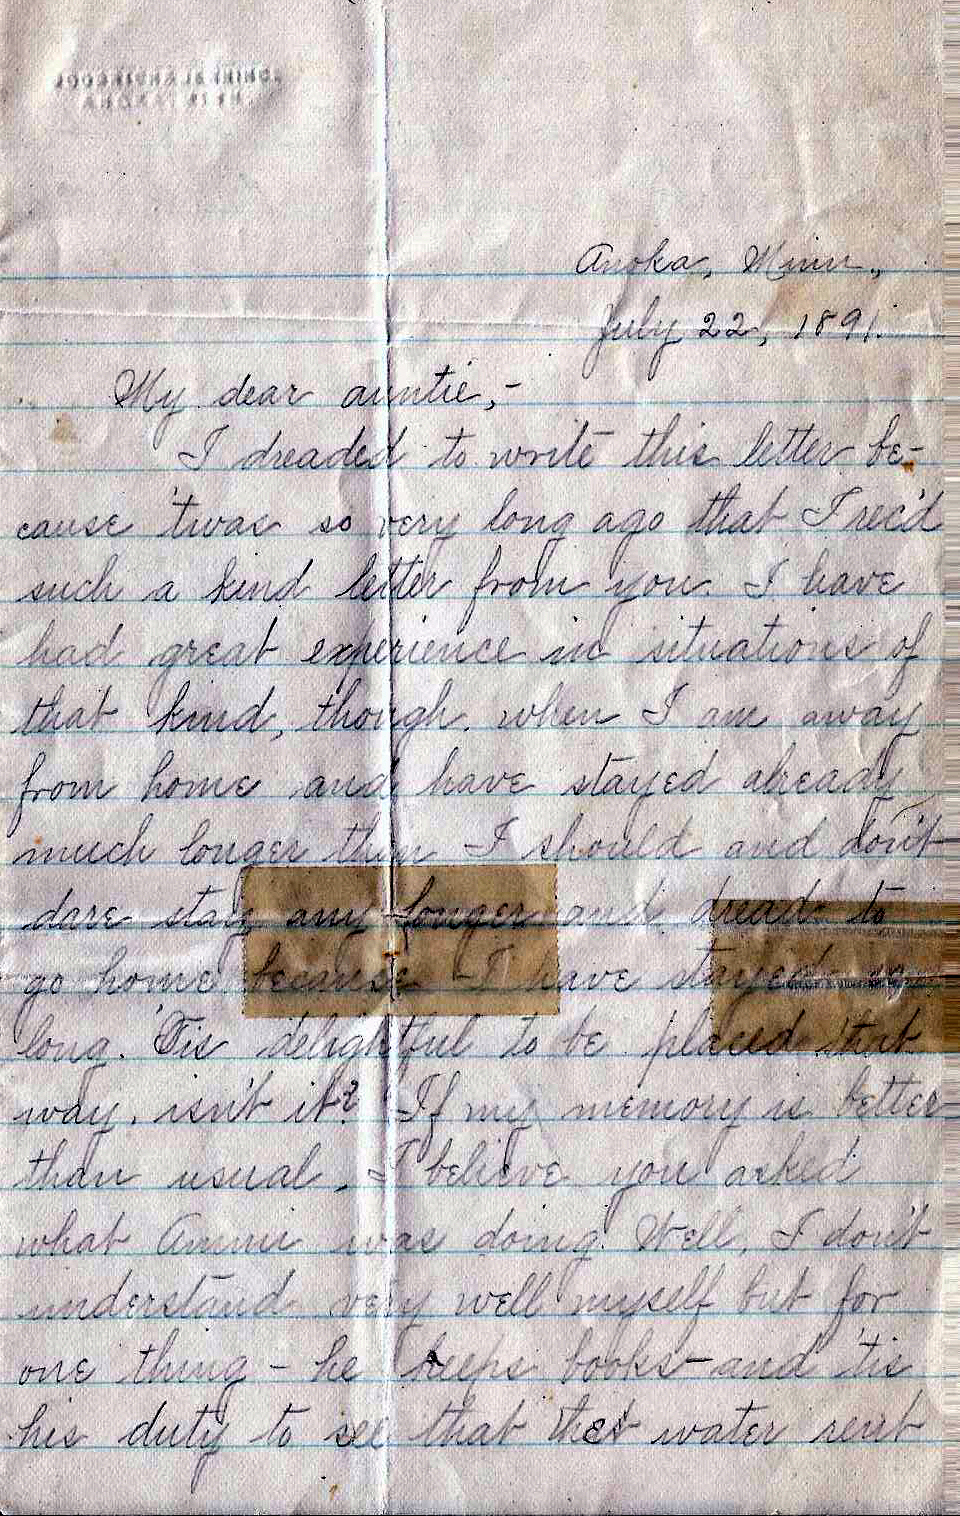 Anoka, Minn.,
July 22, 1891.
My dear auntie,-
I dreaded to write this letter be-
cause 'twas so very long ago that I rec'd
such a kind letter from you. I have
had great experience in situations of
that kind, though, when I am away
from home and have stayed already
much longer than I should and don't
dare stay any longer and dread to
go home because I have stayed so
long. 'Tis delightful to be placed that
way, isn't it? If my memory is better
than usual, I believe you asked
what was doing. Well, I don't
understand very well myself but for
one thing - he keeps books - and 'tis
his duty to see that the water rent